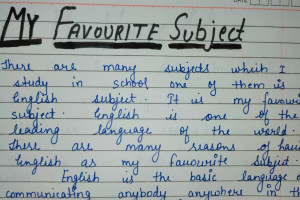 My Favourite Subject
There are many subjects which I
study in school one of them is
English subject. It is my favouri
subject. English is one of the
leading language of the world.
There are many reasons of havi
English as my favourite subject.
English is the basic language o
communicating anybody anywhere in th